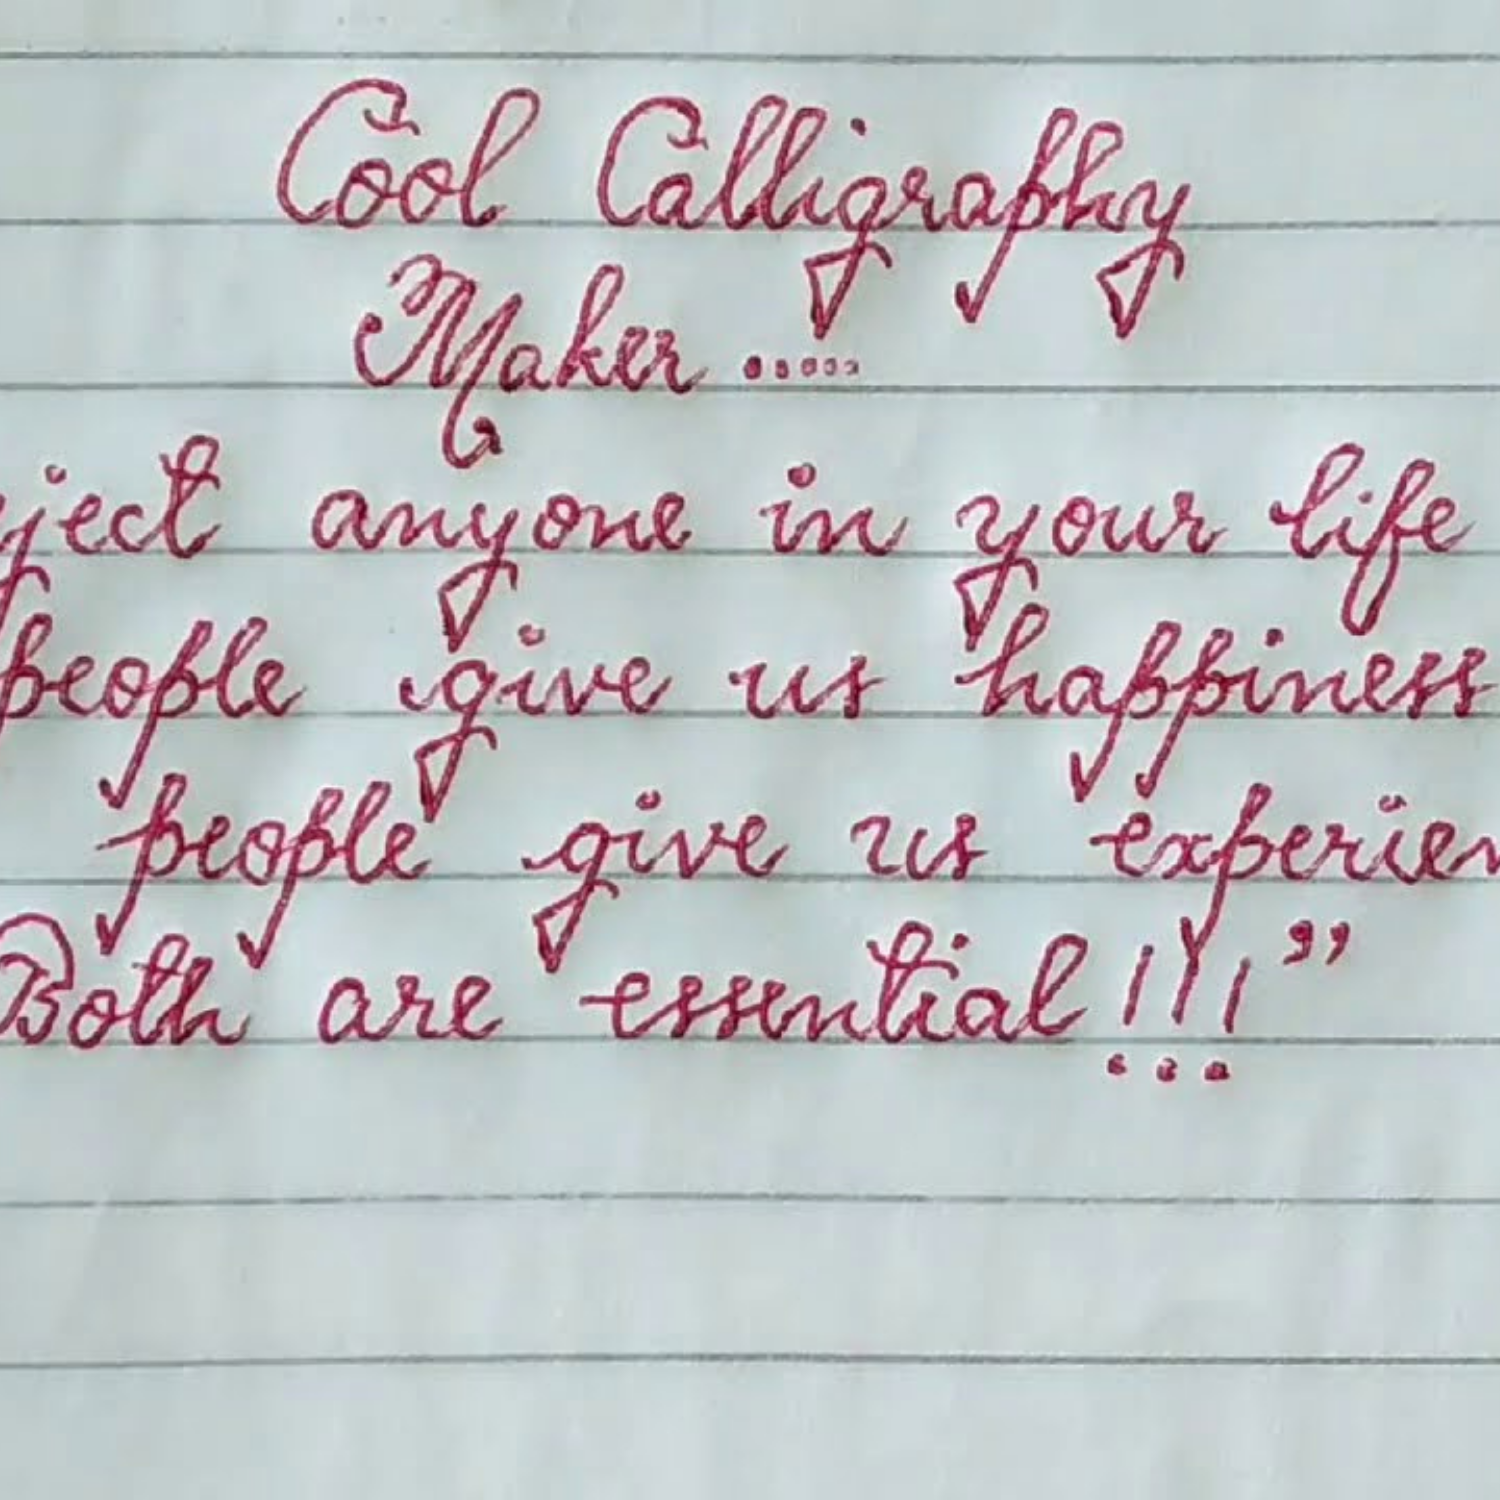 Cool Calligraphy
Maker.....
ject anyone in your life
people give us happiness
people give us experien
Both are essential!!!”